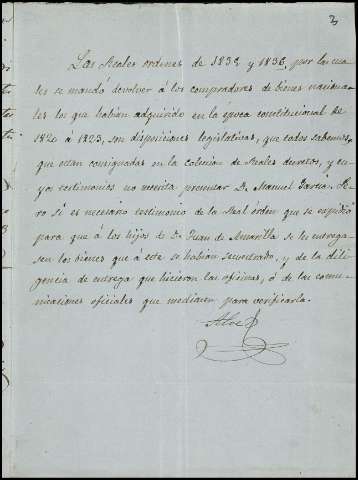 3
Las Reales ordenes de 1835 y 1836, por las cua-
les se mandó devolver á los compradores de bienes naciona-
les los que habian adquirido en la época constitucional de
1820 á 1823, son disposiciones legislativas, que todos sabemos,
que estan consignadas en la colecion de Reales decretos, y cu-
yos testimonios no necesita presentar D. Manuel Garcia. Pe-
ro sí es necesario testimonio de la Real órden que se espidió
para que á los hijos de D. Juan de Amarilla se les entrega-
sen los bienes que á este se habian secuestrado, y de la dili-
gencia de entrega que hicieron las oficinas, ó de las comu-
nicaciones oficiales que mediasen para verificarla.